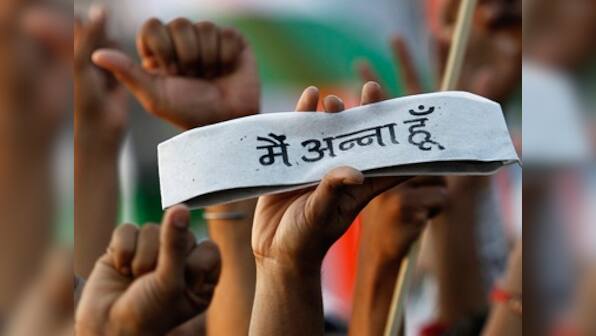 मैं अन्ना हूँ